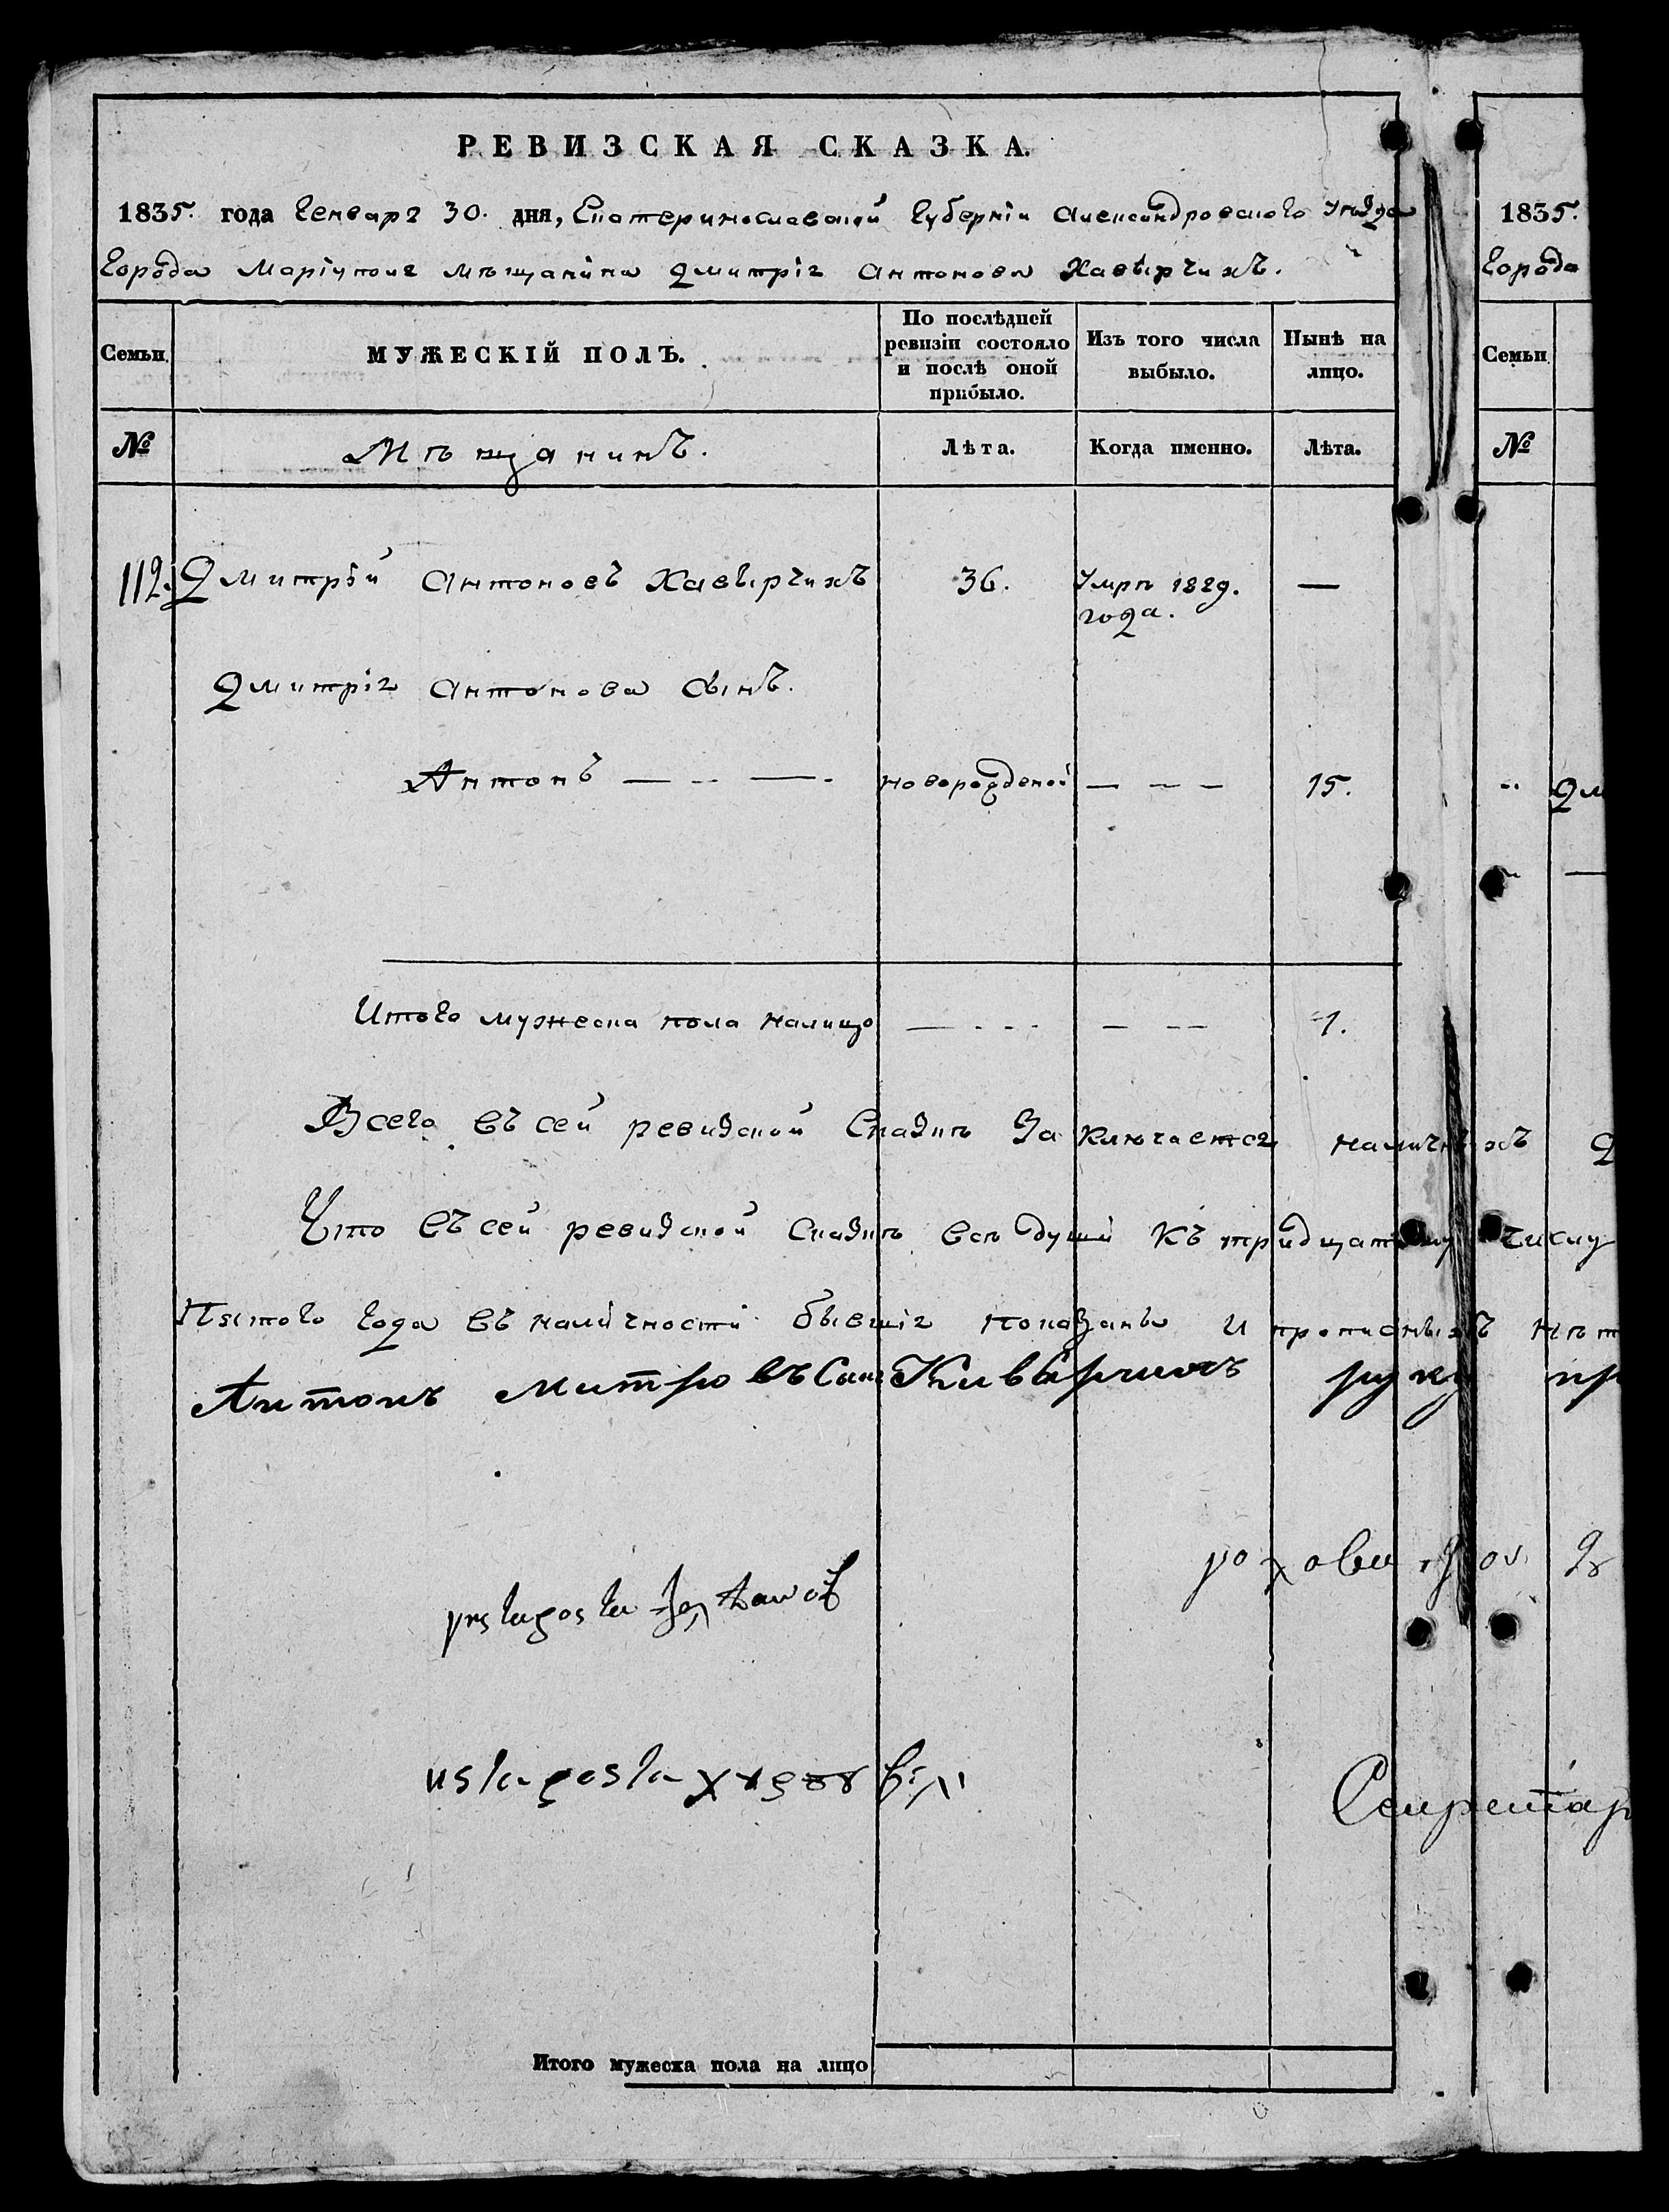 РЕВИЗСКАЯ СКАЗКА.
1835. года Генваря 30. дня, Екатеринославской Губерніи Александровского Уѣзда
Города Маріуполя мѣщанина Дмитрія Антонова Хавырчихъ.
Семьи. МУЖЕСКІЙ ПОЛЪ. По послѣдней ревизіи состояло и послѣ оной прибыло. Изъ того числа выбыло. Нынѣ на лицо.
№ Мѣщанинъ. Лѣта. Когда именно. Лѣта.
112. Дмитрій Антоновъ Хавырчихъ 36. Умре 1829. года. —
Дмитрія Антонова сынъ.
Антонъ — - — - новорожденой — - - 15.
Итого мужеска пола налицо — - - - — - - 1.
Всего въ сей ревизской Сказкѣ Заключается наличныхъ
Что въ сей ревизской сказкѣ всѣ души къ тридцатому числу
Пятого года въ наличности бывшія показаны и прописныхъ нѣт
Антонъ Митро въ Кивърчихъ руку пр
Секретар
Итого мужеска пола на лицо
1835.
Города
Семьи
№